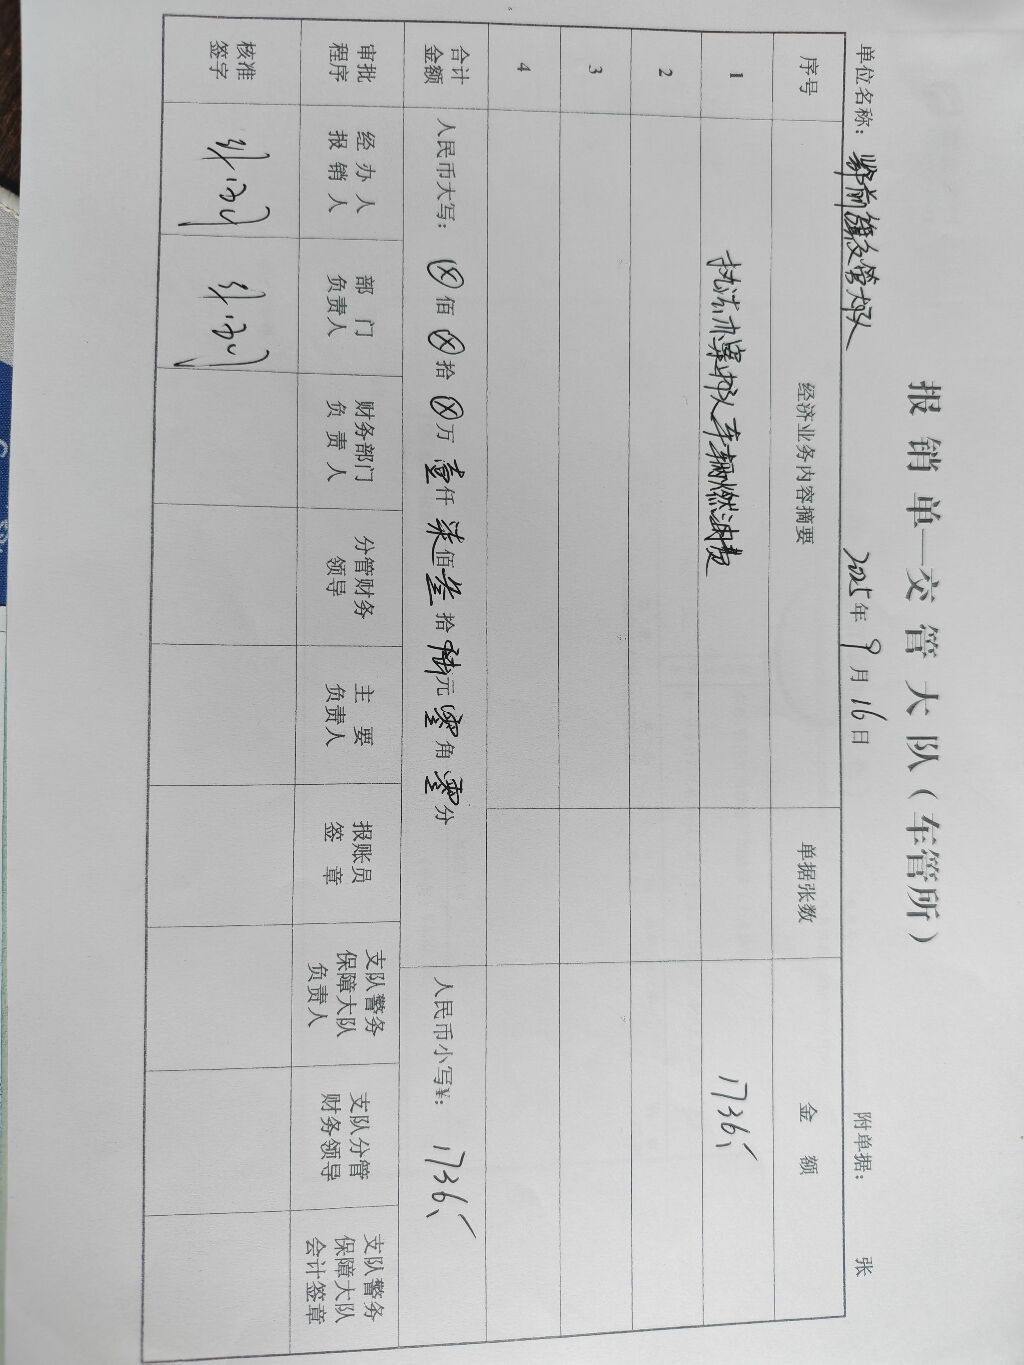 报销单—交管大队（车管所）
单位名称：鄂前旗交管大队 2025年9月16日 附单据： 张
序号 经济业务内容摘要 单据张数 金 额
1 执法办案拉人车辆燃油费 1736.-
2
3
4
合计金额 人民币大写：⊗佰⊗拾⊗万壹仟柒佰叁拾陆元零角零分 人民币小写¥：1736.-
审批程序 经办人报销人 部门负责人 财务部门负责人 分管财务领导 主要负责人 报账员签章 支队警务保障大队负责人 支队分管财务领导 支队警务保障大队会计签章
核准签字